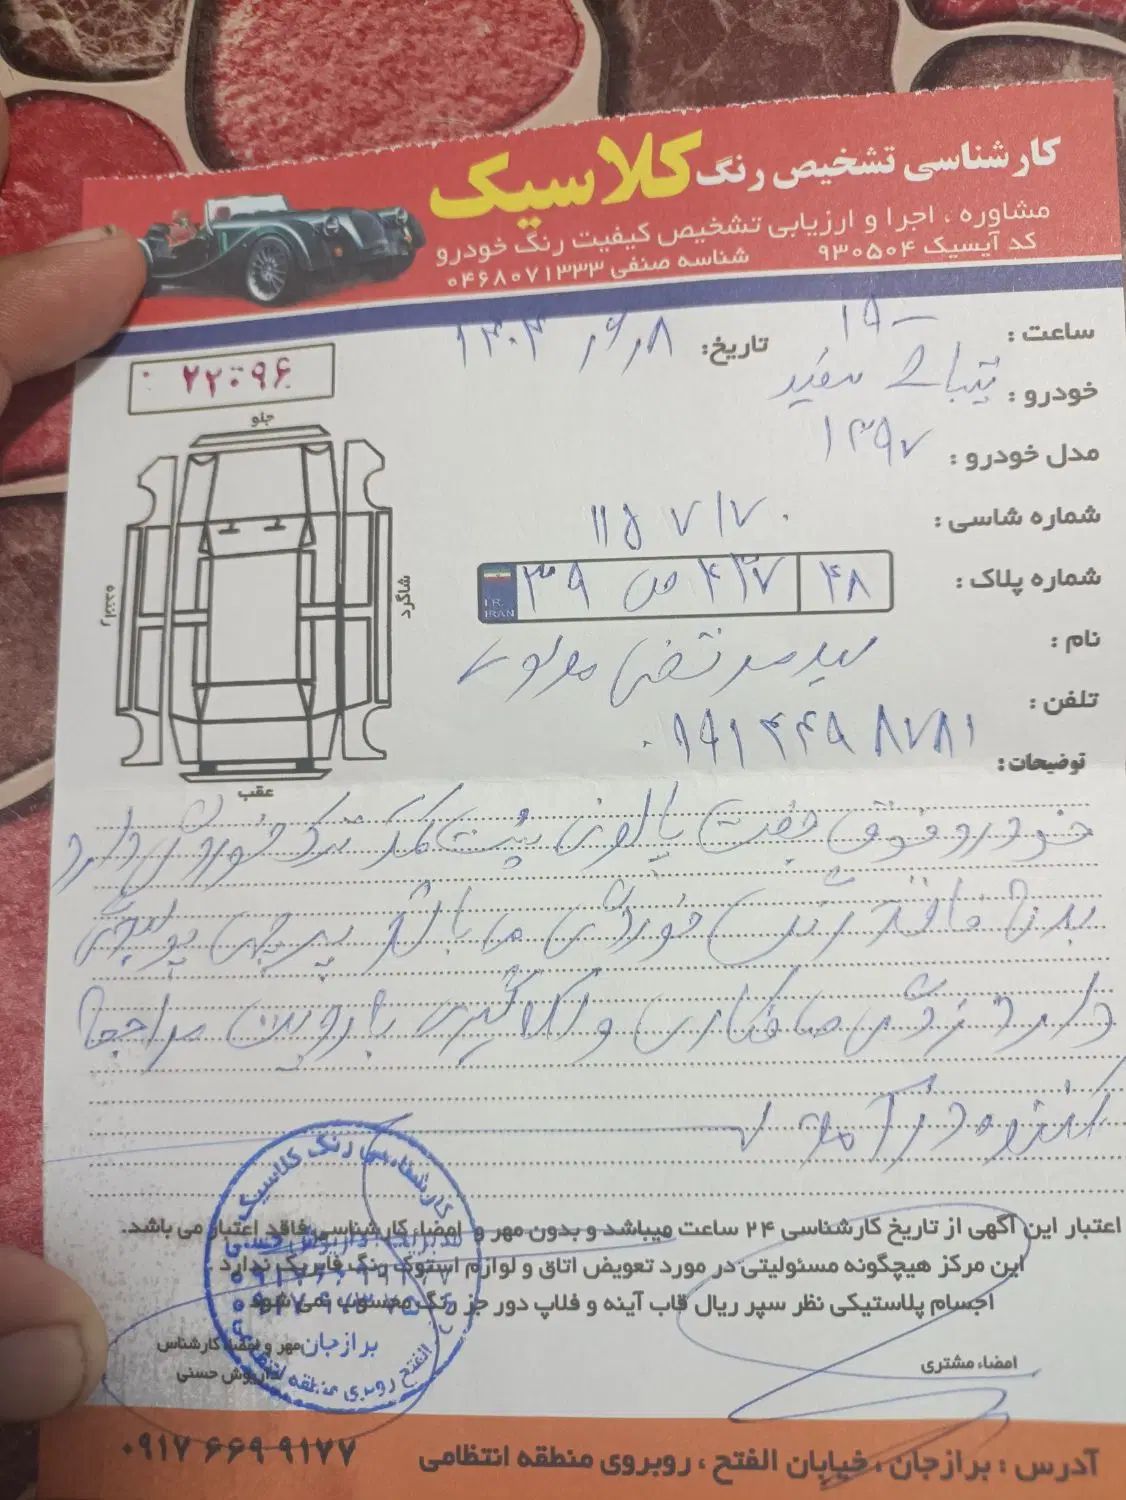 کارشناسی تشخیص رنگ کلاسیک
مشاوره ، اجرا و ارزیابی تشخیص کیفیت رنگ خودرو
کد آیسیک ۹۳۰۵۰۴ شناسه صنفی ۰۴۶۸۰۷۱۳۳۳
ساعت : ۱۹
تاریخ: ۱۴۰۳/۶/۸
۲۲۰۹۶
خودرو : تیبا ۲ سفید
مدل خودرو : ۱۳۹۷
شماره شاسی : ۱۱۵۷۱۷۰
شماره پلاک : ۳۹ ص ۴۳۷ ۴۸
I.R. IRAN
نام : سید مرتضی مولوی
تلفن :
جلو
راننده
شاگرد
عقب
توضیحات:
خودرو فوق جفت پالونی پشت کمک ترک خوردگی دارد
بدنه فاقد رنگ خوردگی می باشد
دارد صافکاری و لکه گیری با روئت مراجعه
کننده
اعتبار این آگهی از تاریخ کارشناسی ۲۴ ساعت میباشد و بدون مهر و امضاء کارشناسی فاقد اعتبار می باشد.
این مرکز هیچگونه مسئولیتی در مورد تعویض اتاق و لوازم استوک رنگ فابریک ندارد.
اجسام پلاستیکی نظر سپر ریال قاب آینه و فلاپ دور جز رنگ محسوب نمی شود
کارشناسی رنگ کلاسیک
برازجان
مهر و امضاء کارشناس
داریوش حسنی
الفتح روبروی منطقه انتظامی
امضاء مشتری
آدرس : برازجان ، خیابان الفتح ، روبروی منطقه انتظامی ۰۹۱۷ ۶۶۹ ۹۱۷۷